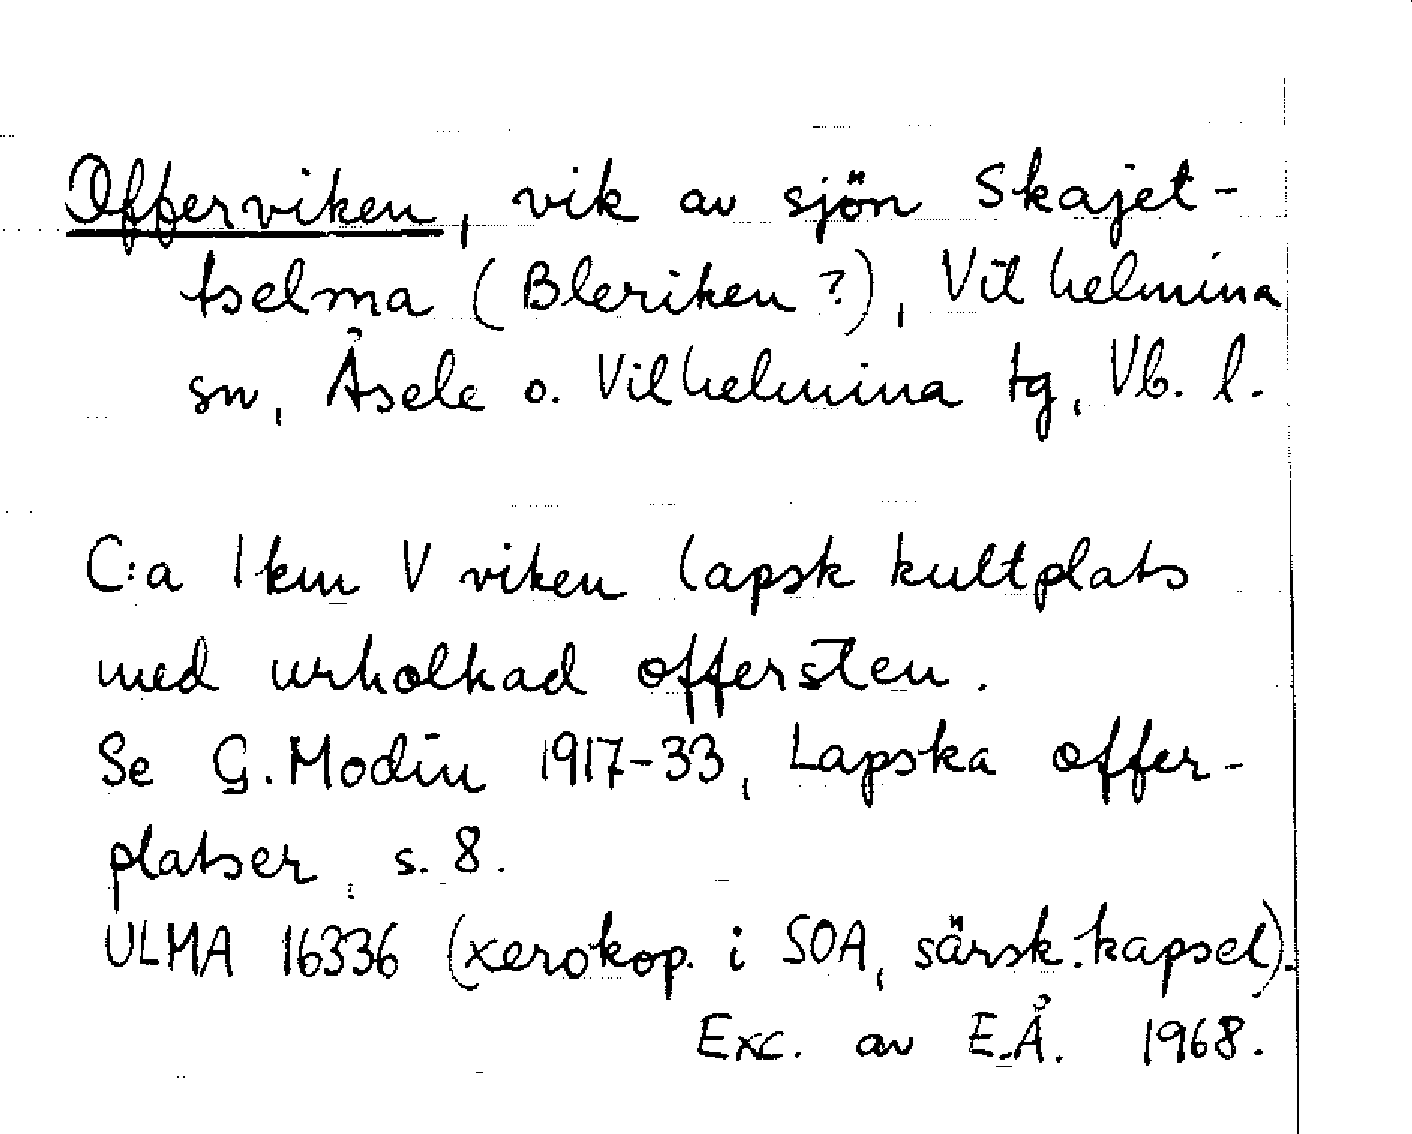 Offerviken, vik av sjön Skajet-
tselma (Bleriken ?), Vilhelmina
sn, Åsele o. Vilhelmina tg, Vb. l.
C:a 1 km V viken lapsk kultplats
med urholkad offersten.
Se G. Modin 1917-33, Lapska offer-
platser, s. 8.
ULMA 16336 (xerokop. i SOA, särsk. kapsel).
Exc. av E.Å. 1968.